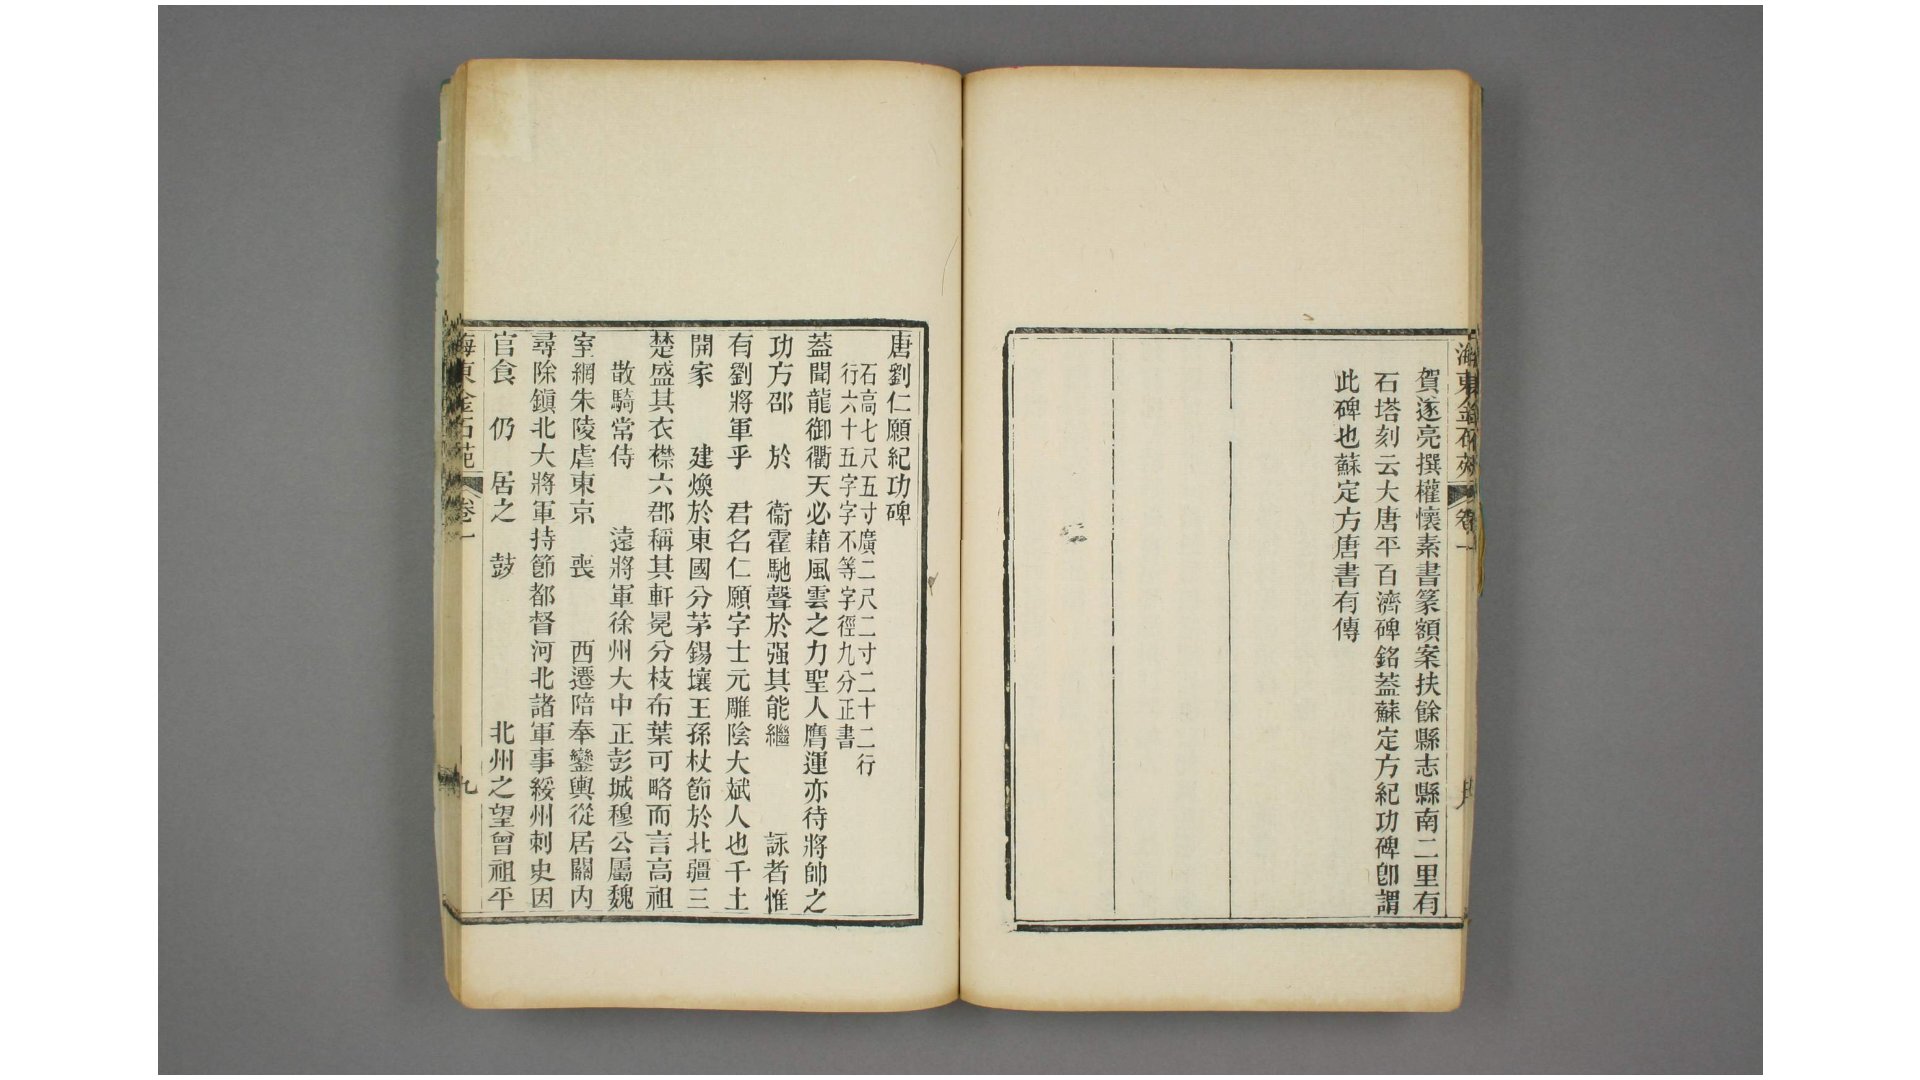 海東金石苑 卷一
賀遂亮撰權懷素書篆額案扶餘縣志縣南二里有
石塔刻云大唐平百濟碑銘蓋蘇定方紀功碑卽謂
此碑也蘇定方唐書有傳
唐劉仁願紀功碑
石高七尺五寸廣二尺二寸二十二行
行六十五字字不等字徑九分正書
蓋聞龍御衢天必藉風雲之力聖人膺運亦待將帥之
功方邵 於 衞霍馳聲於强其能繼 詠者惟
有劉將軍乎 君名仁願字士元雕陰大斌人也千土
開家 建煥於東國分茅錫壤王孫杖節於北疆三
楚盛其衣襟六郡稱其軒冕分枝布葉可略而言高祖
散騎常侍 遠將軍徐州大中正彭城穆公屬魏
室網朱陵虐東京 喪 西遷陪奉鑾輿從居關內
尋除鎭北大將軍持節都督河北諸軍事綏州刺史因
官食 仍 居之 鼓 北州之望曾祖平
海東金石苑 卷一 九